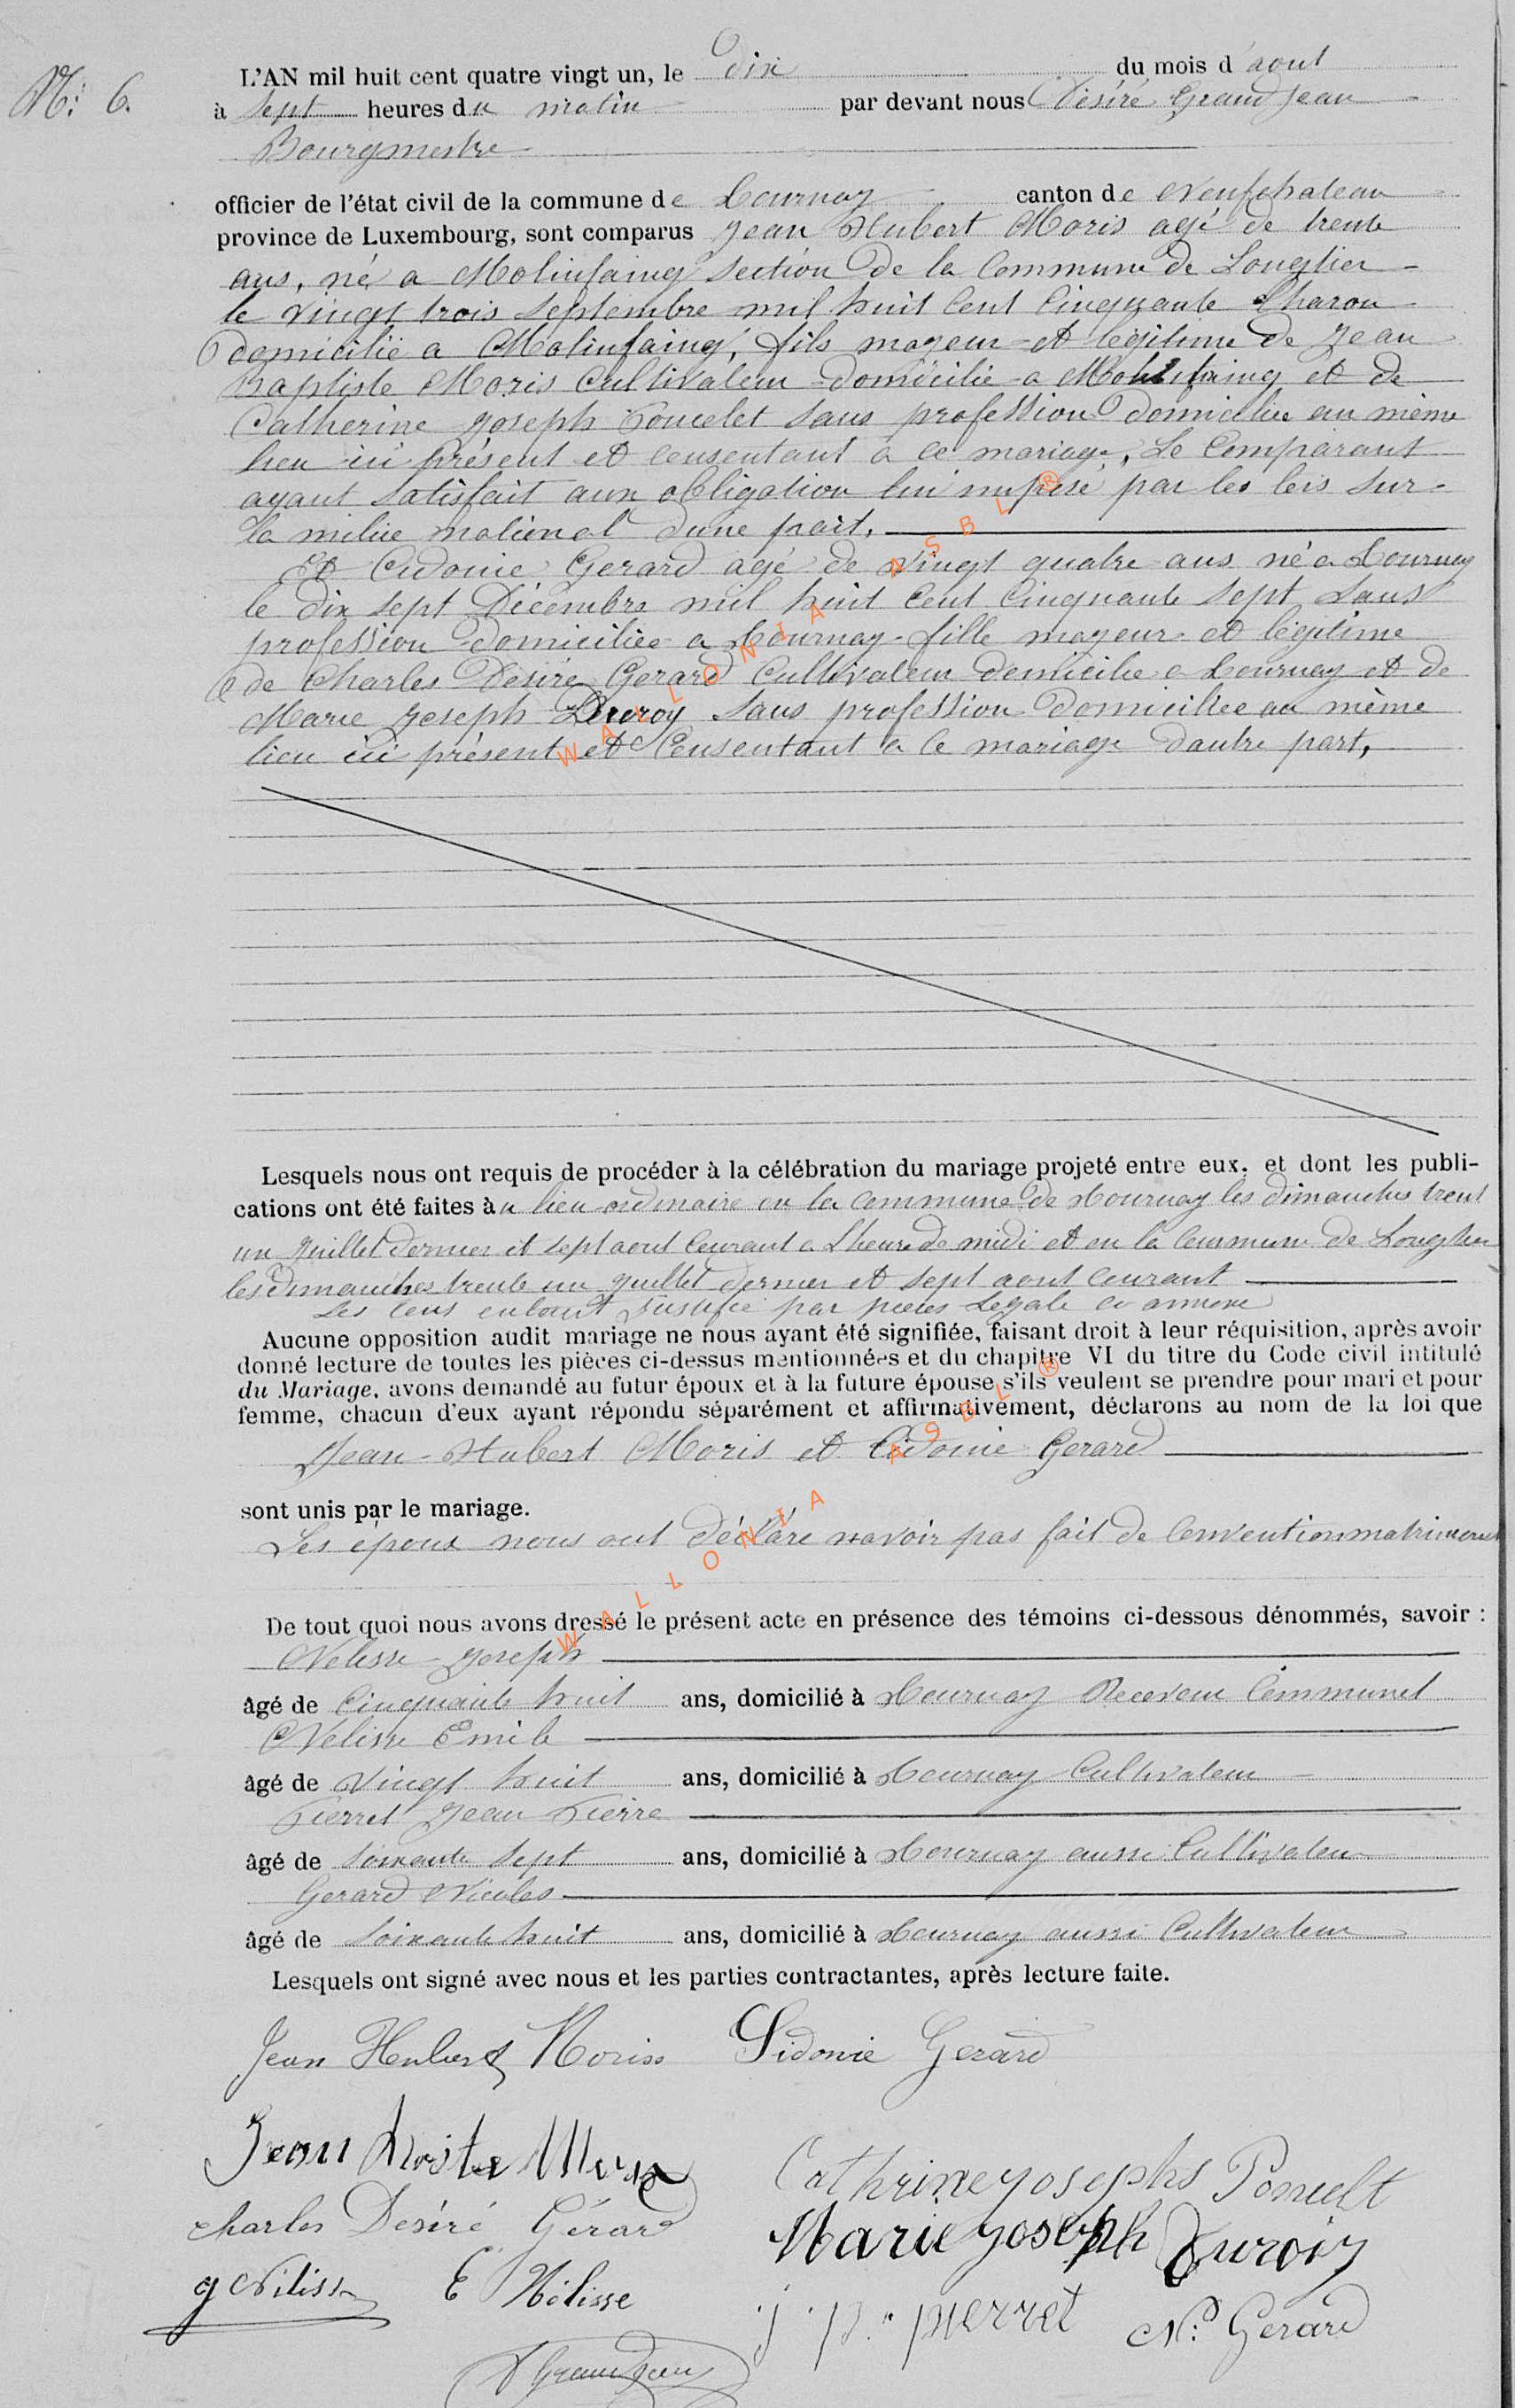 N: 6.
L'AN mil huit cent quatre vingt un, le dix du mois d'aout
à Sept heures du matin par devant nous Désiré Grandjean
Bourgmestre
officier de l'état civil de la commune de Tournay canton de Neufchateau
province de Luxembourg, sont comparus Jean Hubert Moris agé de trente
ans, né a Molinfaing Section de la Commune de Longlier
le vingt trois Septembre mil huit Cent Cinquante Charon
domicilié a Molinfaing, fils mageur et légitime de Jean
Baptiste Moris Cultivateur domicilié a Molinfaing et de
Catherine Joseph Poncelet Sans profession domiciliée au même
lieu ici présent et consentant a ce mariage, Le Comparant
ayant Satisfait aux obligation lui imposé par les lois Sur
la milice national d'une part,
Et Cidonie Gerard agé de vingt quatre ans né a Tournay
le dix sept Décembre mil huit Cent Cinquante Sept Sans
profession domiciliée a Tournay fille mageur et légitime
de Charles Désiré Gerard Cultivateur domicilié a Tournay et de
Marie Joseph Duroy Sans profession domiciliee au même
lieu ici présent et Consentant a ce mariage d'autre part,
Lesquels nous ont requis de procéder à la célébration du mariage projeté entre eux, et dont les publi-
cations ont été faites àu lieu ordinaire en la Commune de Tournay les dimanches trent
un Juillet dernier et sept aout Courant a L'heure de midi et en la Commune de Longlier
les dimanches trente un Juillet dernier et Sept aout Courant
justifié par pieces Legale ci annexe
Aucune opposition audit mariage ne nous ayant été signifiée, faisant droit à leur réquisition, après avoir
donné lecture de toutes les pièces ci-dessus mentionnées et du chapitre VI du titre du Code civil intitulé
du Mariage, avons demandé au futur époux et à la future épouse s'ils veulent se prendre pour mari et pour
femme, chacun d'eux ayant répondu séparément et affirmativement, déclarons au nom de la loi que
Jean-Hubert Moris et Cidonie Gerard
sont unis par le mariage.
Les époux nous ont déclaré navoir pas fait de Convention matrimonial
De tout quoi nous avons dressé le présent acte en présence des témoins ci-dessous dénommés, savoir :
Nelisse Joseph
âgé de Cinquante huit ans, domicilié à Tournay Receveur Communal
Nelisse Emile
âgé de Vingt huit ans, domicilié à Tournay Cultivateur
Pierret Jean Pierre
âgé de Soixante Sept ans, domicilié à Tournay aussi Cultivateur
Gerard Nicolas
âgé de Soixante huit ans, domicilié à Tournay aussi Cultivateur
Lesquels ont signé avec nous et les parties contractantes, après lecture faite.
Jean Hubert Moris Sidonie Gerard
Jean
Cathrine yosephs Poncelt
Charles Désiré Gérard
Marie yoseph Duroiy
J Nélisse E Nélisse
j. p. pierret N: Gerard
D Grandjean
WALLONIA ASBL ®
WALLONIA ASBL ®